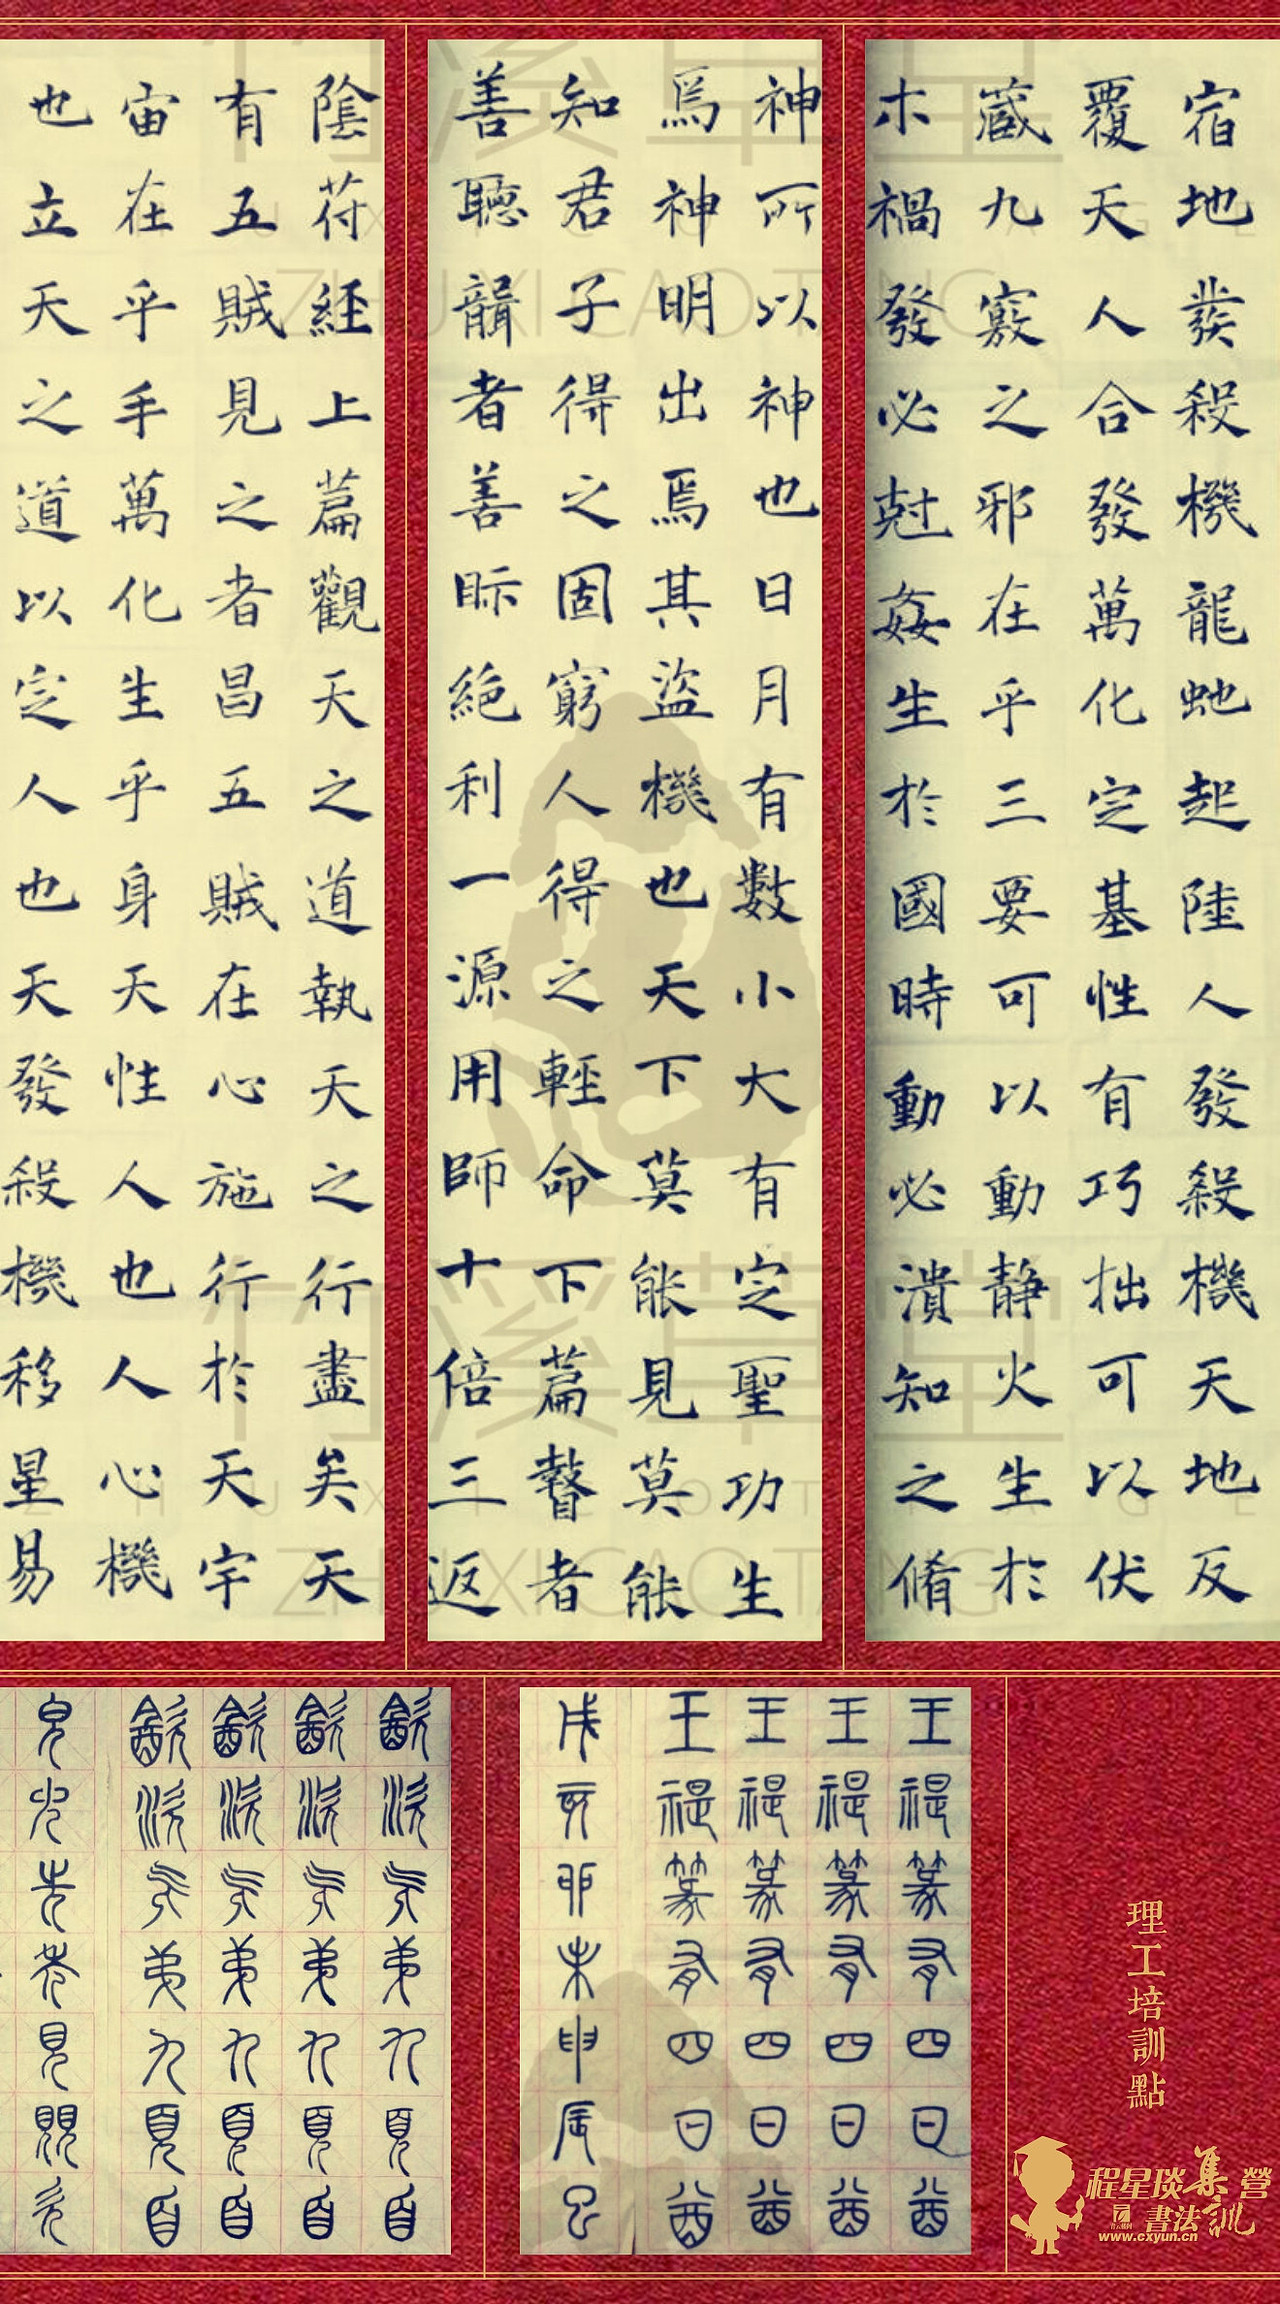 宿地發殺機龍虵起陸人發殺機天地反
覆天人合發萬化定基性有巧拙可以伏
藏九竅之邪在乎三要可以動静火生於
木禍發必尅姦生於國時動必潰知之脩
神所以神也日月有數小大有定聖功生
焉神明出焉其盜機也天下莫能見莫能
知君子得之固窮人得之輕命下篇瞽者
善聽聾者善眎絕利一源用師十倍三返
陰符經上篇觀天之道執天之行盡矣天
有五賊見之者昌五賊在心施行於天宇
宙在乎手萬化生乎身天性人也人心機
也立天之道以定人也天發殺機移星易
理工培訓點
程星琰書法集訓營
www.cxyun.cn
王禔篆友四曰酋
王禔篆友四曰酋
王禔篆友四曰酋
王禔篆友四曰酋
戌亥卯未申辰巳
竹溪草堂
ZHUXICAOTANG
竹溪草堂
ZHUXICAOTANG